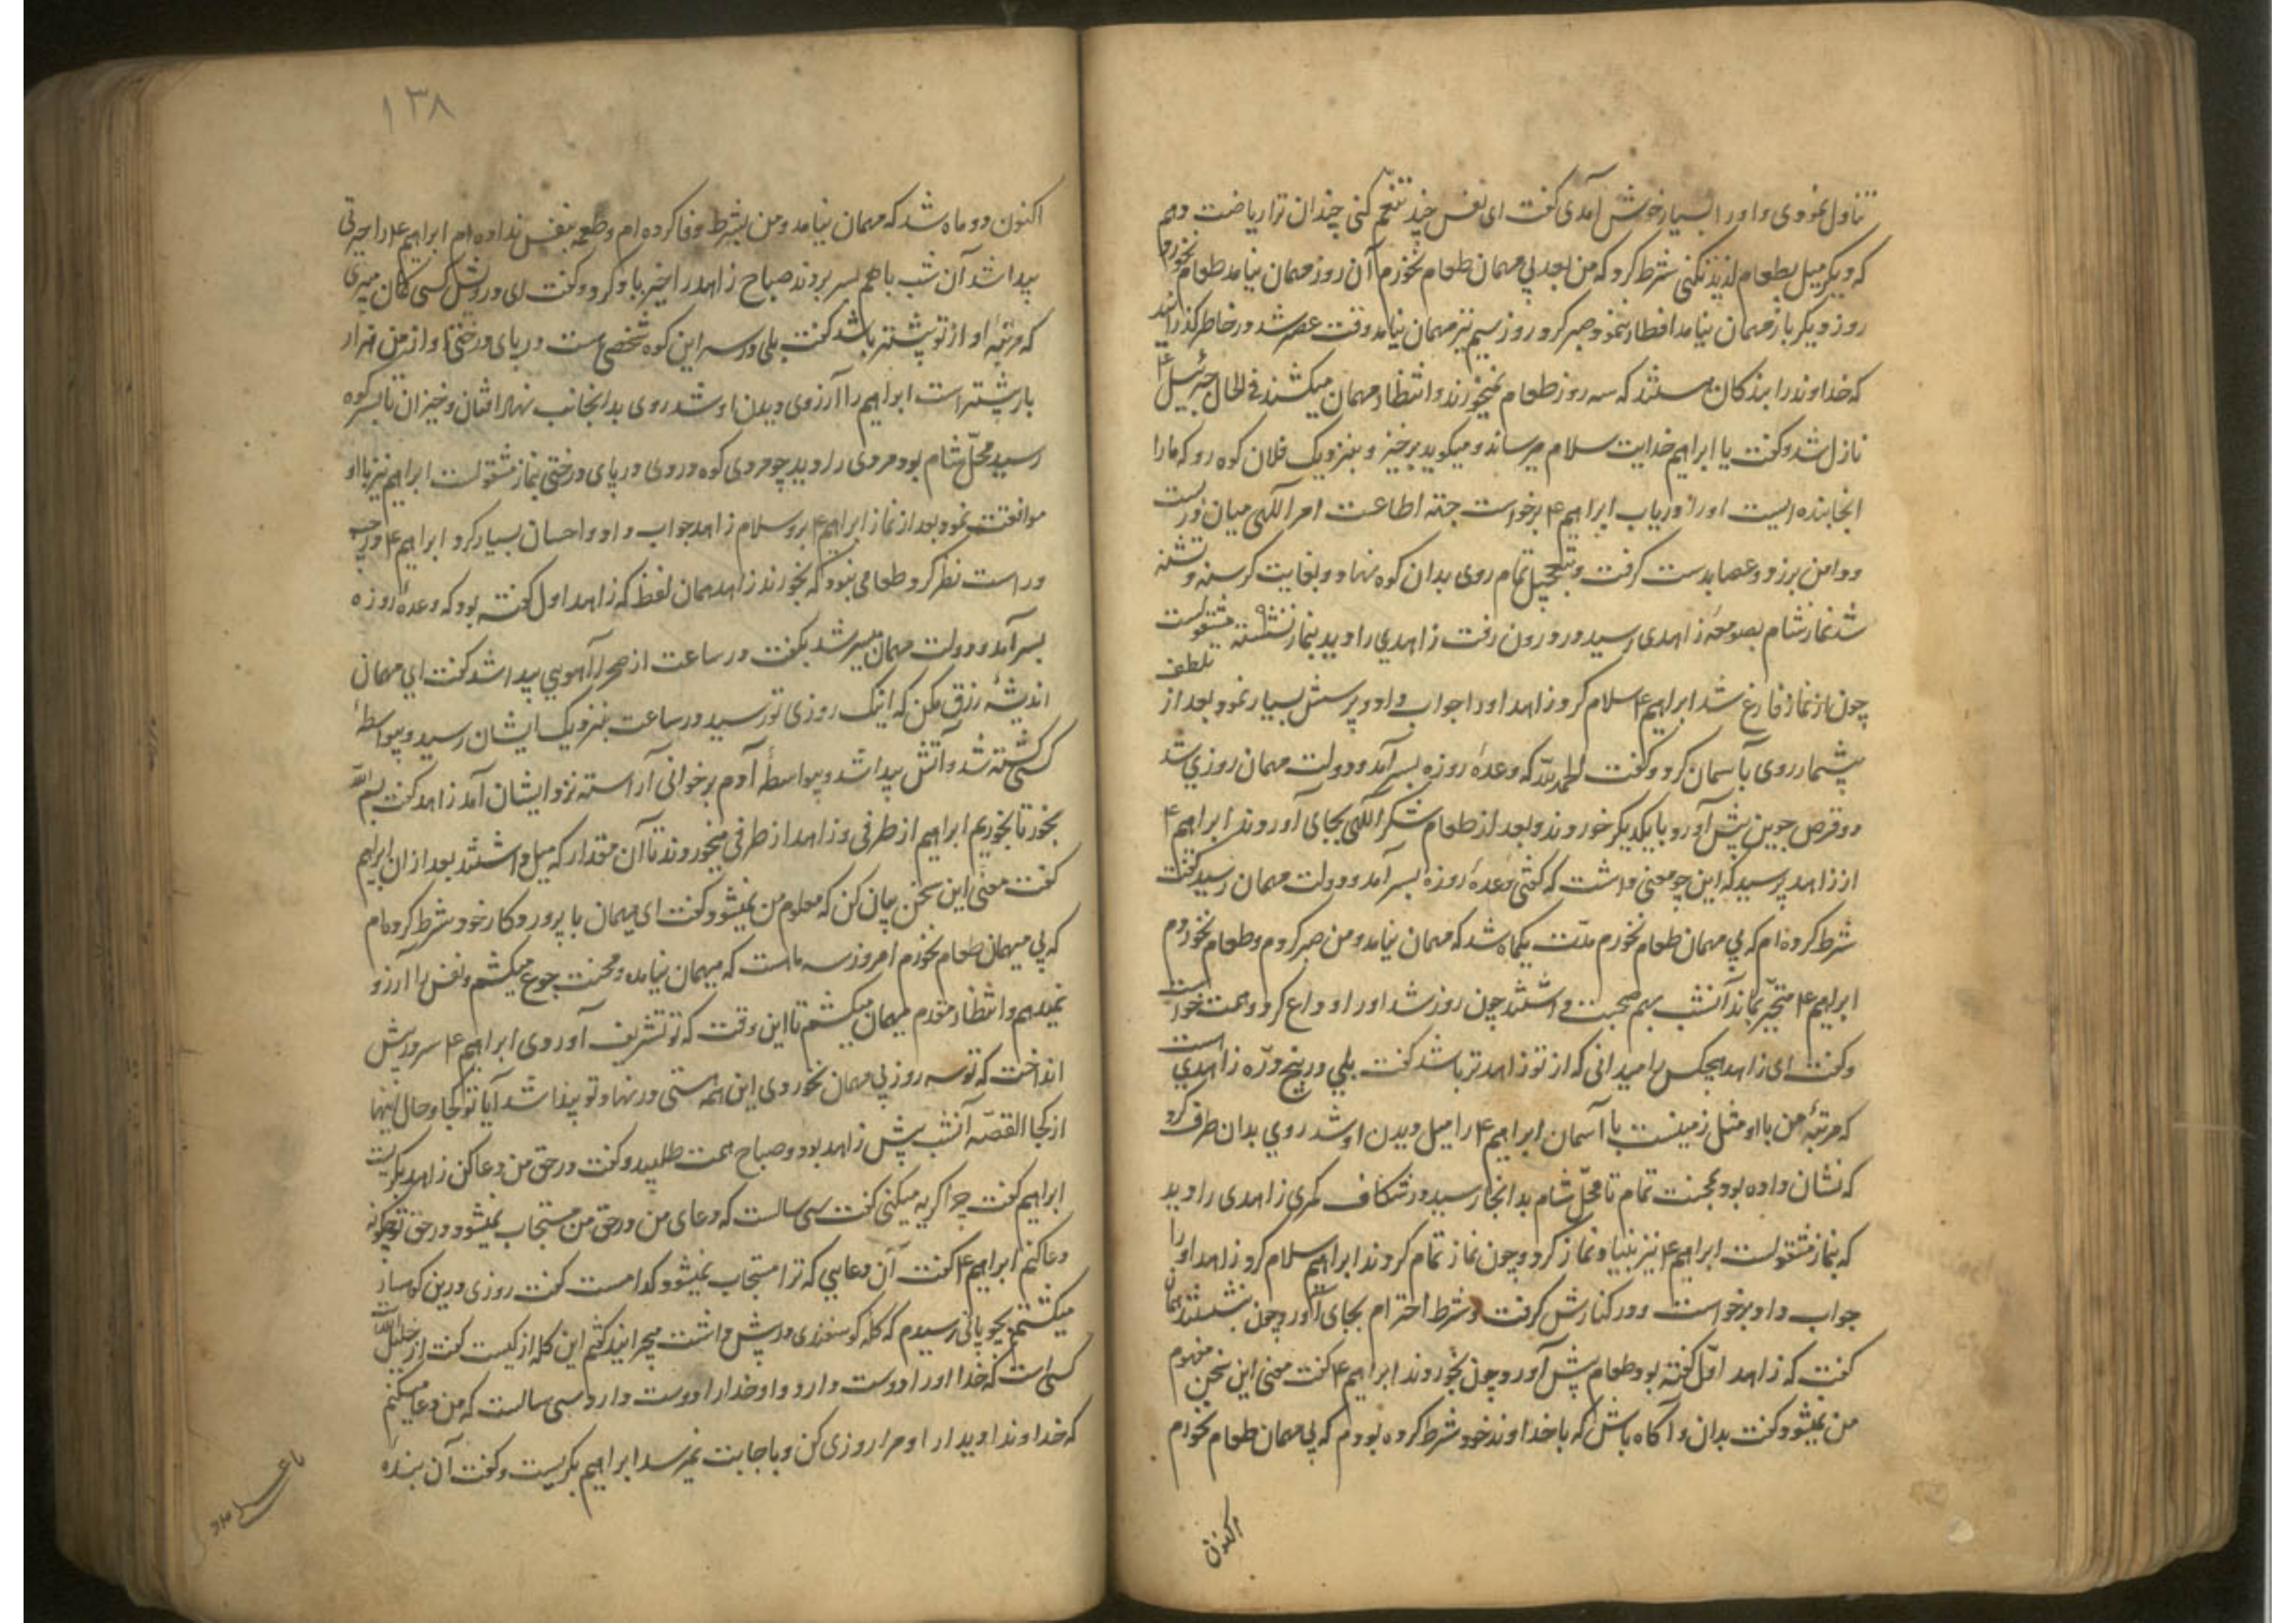 تناول نمودی و او را بسیار خوش آمدی گفت ای نفس چند تنعم کنی چندان ترا ریاضت دهم
که دیگر میل بطعام لذیذ نکنی شرط کرد که من بعد بی مهمان طعام نخورم آن روز مهمان نیامد طعام نخورد
روز دیگر باز مهمان نیامد افطار ننمود و صبر کرد روز سیم نیز مهمان نیامد وقت عصر شد در خاطر گذرانید
که خداوند را بندگان هستند که سه روز طعام نمیخورند و انتظار مهمان میکشند فی الحال جبرئیل ۴
نازل شد و گفت یا ابراهیم خدایت سلام میرساند و میکوید برخیز و بنزدیک فلان کوه رو که ما را
آنجا بنده ایست او را دریاب ابراهیم ۴ برخواست جهة اطاعت امر الهی میان در بست
و دامن برزد و عصا بدست گرفت و بتعجیل تمام روی بدان کوه نهاد و بغایت گرسنه و تشنه
شد نماز شام بصومعهٔ زاهدی رسید در درون رفت زاهدی را دید بنماز نشسته مشغولست
چون از نماز فارغ شد ابراهیم ۴ سلام کرد زاهد او را جواب داد و پرسش بسیار نمود بعد از تلطف
بیشمار روی بآسمان کرد و گفت الحمدلله که وعدهٔ روزه بسر آمد و دولت مهمان روزی شد
دو قرص جوین پیش آورد با یکدیگر خوردند و بعد از طعام شکر الهی بجای آوردند ابراهیم ۴
از زاهد پرسید که این چه معنی داشت که گفتی وعدهٔ روزه بسر آمد و دولت مهمان رسید گفت
شرط کرده ام که بی مهمان طعام نخورم مدت یکماه شد که مهمان نیامد و من صبر کردم و طعام نخوردم
ابراهیم ۴ متحیّر بماند آنشب بهم صحبت داشتند چون روز شد او را وداع کرد و همت خواست
و گفت ای زاهد هیچکس را میدانی که از تو زاهدتر باشد گفت بلی در پنج دره زاهدی است
که مرتبهٔ من با او مثل زمینست با آسمان ابراهیم ۴ را میل دیدن او شد روی بدان طرف کرد
که نشان داده بود بمحنت تمام تا محلّ شام بدانجا رسید در شکاف کمری زاهدی را دید
که بنماز مشغولست ابراهیم ۴ نیز بنیاد نماز کرد و چون نماز تمام کردند ابراهیم سلام کرد زاهد او را
جواب داد و برخواست و در کنارش گرفت و شرط احترام بجای آورد چون بنشستند همان
گفت که زاهد اوّل گفته بود طعام پیش آورد چون بخوردند ابراهیم ۴ گفت معنی این سخن مفهوم
من نمیشود گفت بدان و آگاه باش که با خداوند خود شرط کرده بودم که بی مهمان طعام نخورم
اکنون
۱۳۸
اکنون دو ماه شد که مهمان نیامد و من بشرط وفا کرده ام و طعمه بنفس نداده ام ابراهیم ۴ را حیرتی
پیدا شد آن شب با هم بسر بردند صباح زاهد را خیرباد کرد و گفت ای درویش کسی کمان میبری
که مرتبهٔ او از تو بیشتر باشد گفت بلی در سر این کوه شخصی است در پای درختی او از من هزار
بار بیشتر است ابراهیم را آرزوی دیدن او شد روی بدانجانب نهاد افتان و خیزان تا بسر کوه
رسید محلّ شام بود مردی را دید در پای درختی بنماز مشغولست ابراهیم نیز با او
موافقت نمود بعد از نماز ابراهیم ۴ برو سلام زاهد جواب داد و احسان بسیار کرد ابراهیم ۴ در چپ
و راست نظر کرد طعامی نبود که بخورند زاهد همان لفظ که زاهد اول گفته بود که وعدهٔ روزه
بسر آمد و دولت مهمان میسر شد بگفت در ساعت از صحرا آهویی پیدا شد گفت ای مهمان
اندیشهٔ رزق مکن که اینک روزی تو رسید در ساعت بنزدیک ایشان رسید و بیواسطهٔ
کسی کشته شد و آتش پیدا شد و بیواسطهٔ آدم بر خوانی آراسته نزد ایشان آمد زاهد گفت بسم الله
بخور تا بخوریم ابراهیم از طرفی و زاهد از طرفی میخوردند تا آن مقدار که میل داشتند بعد از ان ابراهیم
گفت معنی این سخن بیان کن که معلوم من نمیشود گفت ای مهمان با پروردکار خود شرط کرده ام
که بی میهمان طعام نخورم امروز سه ماست که میهمان نیامده و محنت جوع میکشم و نفس را آرزو
نمیدهم و انتظار مقدم میهمان میکشم تا این وقت که تو تشریف آوردی ابراهیم ۴ سر در پیش
انداخت که تو سه روز بی مهمان نخوردی این همه هستی در نهاد تو پیدا شد آیا تو کجا و حال اینها
از کجا القصّه آنشب پیش زاهد بود و صباح همت طلبید و گفت در حق من دعا کن زاهد بگریست
ابراهیم گفت چرا گریه میکنی گفت سی سالست که دعای من در حق من مستجاب نمیشود در حق تو چگونه
دعا کنم ابراهیم ۴ گفت آن دعایی که ترا مستجاب نمیشود کدامست گفت روزی درین کوهسار
میگشتم بچوپانی رسیدم که گله گوسفندی در پیش داشت میچرانید گفتم این گله از کیست گفت از خلیل الله
کسی است که خدا او را دوست دارد و او خدا را دوست دارد سی سالست که من دعا میکنم
که خداوندا دیدار او مرا روزی کن و باجابت نمیرسد ابراهیم بگریست و گفت آن بنده